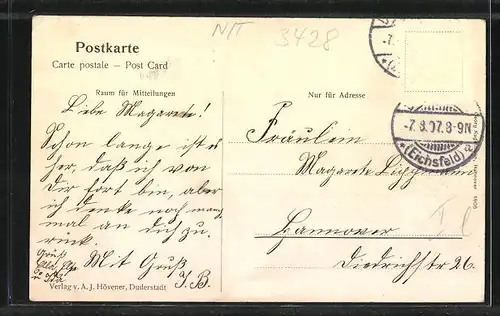 NIT
3428
Postkarte
Carte postale – Post Card
Raum für Mitteilungen
Nur für Adresse
-7.8.07.8-9N
*(Eichsfeld) a
Liebe Magarete!
Schon lange ist es
her, daß ich von
Dir fort bin, aber
ich denke noch manch
mal an dich zu-
rück.
Mit Gruß
J. B.
Gruß
Fräulein
Magarete
Hannover
Diedrichstr 26.
Verlag v. A. J. Hövener, Duderstadt